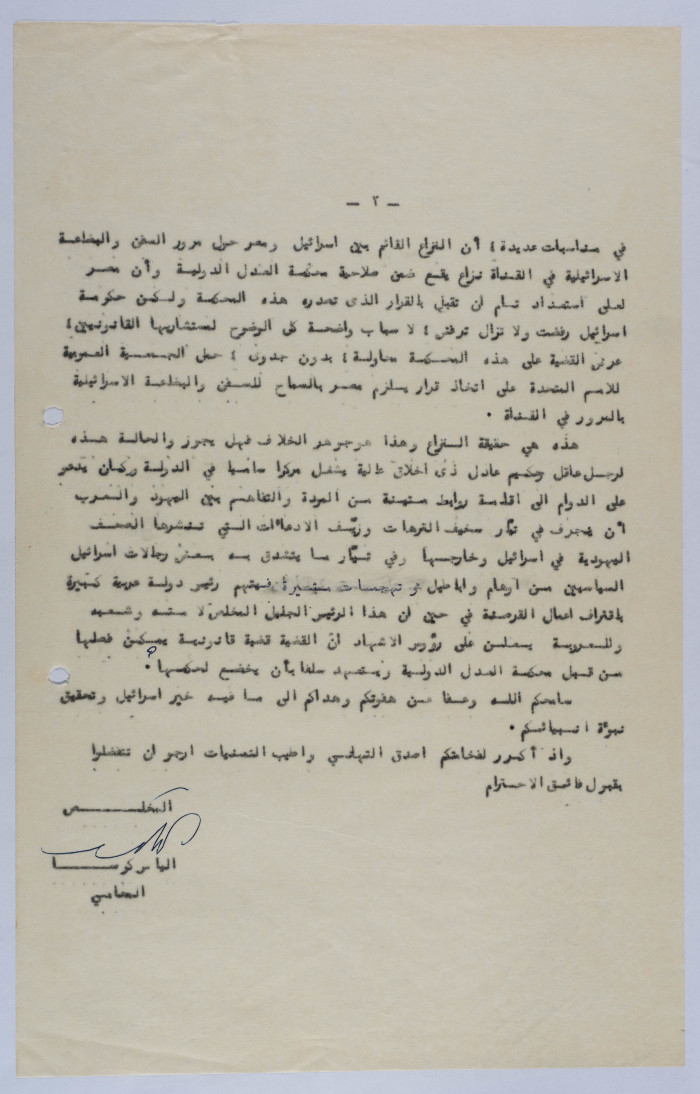 — ٢ —
في مناسبات عديدة ؛ أن النزاع القائم بين اسرائيل ومصر حول مرور السفن والبضاعة
الاسرائيلية في القناة نزاع يقع ضمن صلاحية محكمة العدل الدولية وأن مصر
لعلى استعداد تام لن تقبل بالقرار الذى تصدره هذه المحكمة ولكن حكومة
اسرائيل رفضت ولا تزال ترفض ؛ لاسباب واضحة كل الوضوح لمستشاريها القانونيين ؛
عرض القضية على هذه المحكمة محاولة ؛ بدون جدوى ؛ حمل الجمعية العمومية
للامم المتحدة على اتخاذ قرار يلزم مصر بالسماح للسفن والبضاعة الاسرائيلية
بالمرور في القناة .
هذه هي حقيقة النزاع وهذا هو جوهر الخلاف فهل يجوز والحالة هذه
لرجل عاقل حكيم عادل ذى اخلاق عالية يشغل مركزا ساميا في الدولة وكان يدعو
على الدوام الى اقامة روابط متينة من المودة والتفاهم بين اليهود والعرب
أن ينجرف في تيار سخيف الترهات وزيف الادعاآت التي تنشرها الصحف
اليهودية في اسرائيل وخارجها وفي تيار ما يتشدق به بعض رجالات اسرائيل
السياسيين من اوهام واباطيل فيتهم رئيس دولة عربية كبيرة
باقتراف اعمال القرصنة في حين ان هذا الرئيس الجليل المخلص لامته وشعبه
وللعروبة يعلن على رؤوس الاشهاد انّ القضية قضية قانونية يمكن فصلها
من قبل محكمة العدل الدولية ويتعهد سلفا بأن يخضع لحكمها .
سامحكم الله وعفا عن هفوتكم وهداكم الى ما فيه خير اسرائيل وتحقيق
نبوة انبيائكم .
واذ أكرر لفخامتكم اصدق التهاني واطيب التمنيات ارجو ان تتفضلوا
بقبول فائق الاحترام
المخلص
الياس كوسا
المحامي